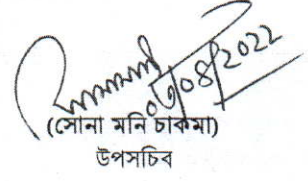 ০৩/০৪/2022
(সোনা মনি চাকমা)
উপসচিব